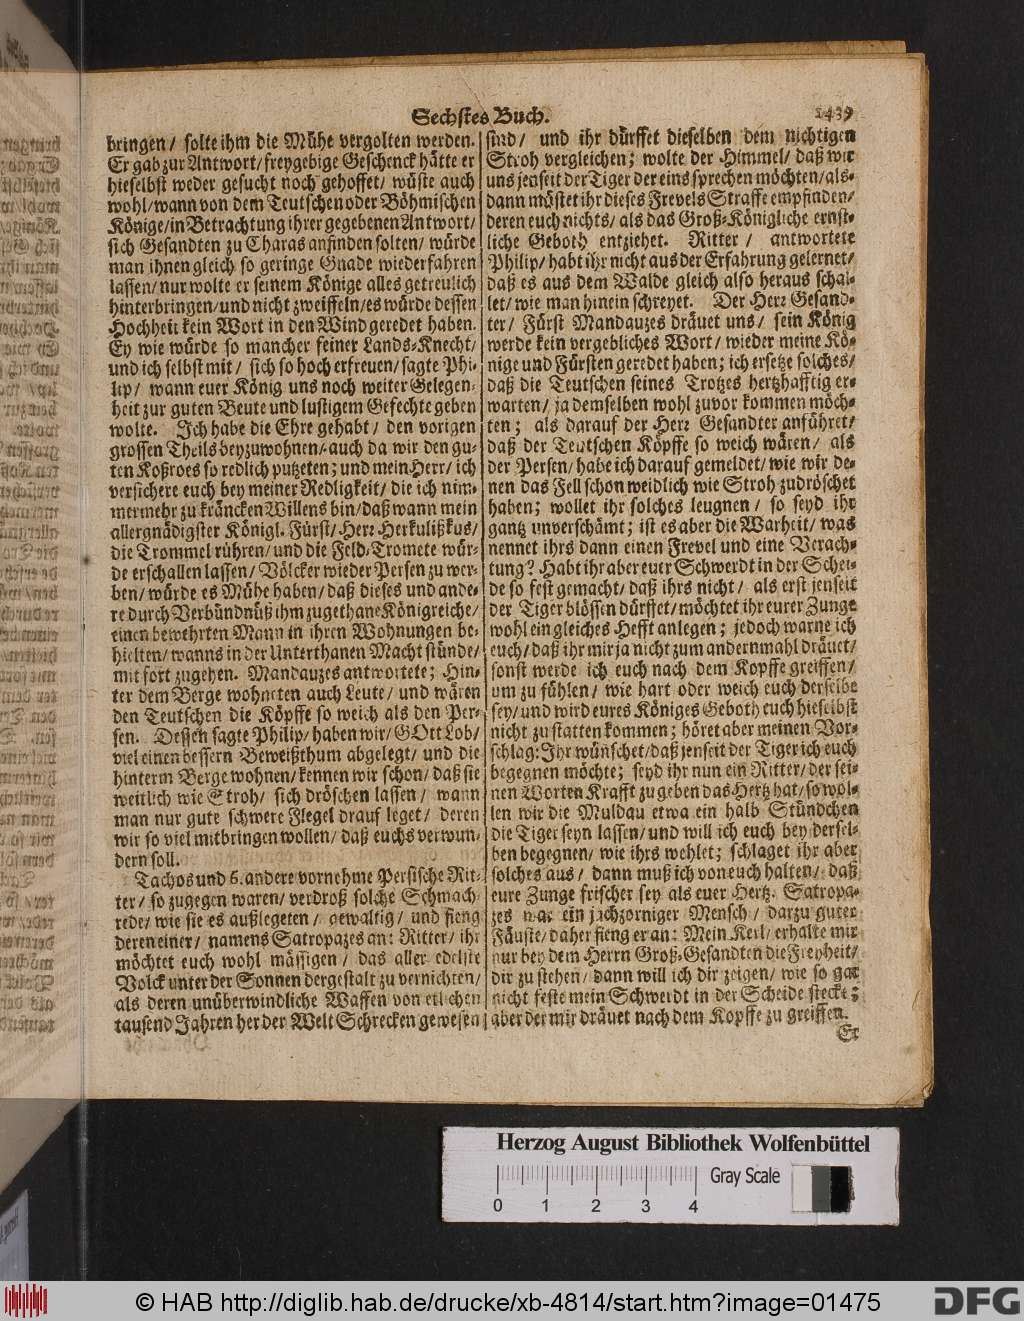 Sechstes Buch. 1439
bringen / solte ihm die Mühe vergolten werden.
Er gab zur Antwort / freygebige Geschenck hätte er
hieselbst weder gesucht noch gehoffet / wüste auch
wohl / wann von dem Teutschen oder Böhmischen
Könige / in Betrachtung ihrer gegebenen Antwort /
sich Gesandten zu Charas anfinden solten / würde
man ihnen gleich so geringe Gnade wiederfahren
lassen / nur wolte er seinem Könige alles getreulich
hinterbringen / und nicht zweiffeln / es würde dessen
Hochheit kein Wort in den Wind geredet haben.
Ey wie würde so mancher feiner Lands-Knecht /
und ich selbst mit / sich so hoch erfreuen / sagte Phi-
lip / wann euer König uns noch weiter Gelegen-
heit zur guten Beute und lustigem Gefechte geben
wolte. Ich habe die Ehre gehabt / den vorigen
grossen Theils beyzuwohnen / auch da wir den gu-
ten Koßroes so redlich putzeten; und mein Herr / ich
versichere euch bey meiner Redligkeit / die ich nim-
mermehr zu kräncken Willens bin / daß wann mein
allergnädigster Königl. Fürst / Herr Herkulißkus /
die Trommel rühren / und die Feld-Tromete wür-
de erschallen lassen / Völcker wieder Persen zu wer-
ben / würde es Mühe haben / daß dieses und ande-
re durch Verbündnüß ihm zugethane Königreiche /
einen bewehrten Mann in ihren Wohnungen be-
hielten / wanns in der Unterthanen Macht stünde /
mit fort zugehen. Mandauzes antwortete; Hin-
ter dem Berge wohneten auch Leute / und wären
den Teutschen die Köpffe so weich als den Per-
sen. Dessen sagte Philip / haben wir / GOtt Lob /
viel einen bessern Beweißthum abgelegt / und die
hinterm Berge wohnen / kennen wir schon / daß sie
weitlich wie Stroh / sich dröschen lassen / wann
man nur gute schwere Flegel drauf leget / deren
wir so viel mitbringen wollen / daß euchs verwun-
dern soll.
Tachos und 6. andere vornehme Persische Rit-
ter / so zugegen waren / verdroß solche Schmach-
rede / wie sie es außlegeten / gewaltig / und fieng
deren einer / namens Satropazes an: Ritter / ihr
möchtet euch wohl mässigen / das aller edelste
Volck unter der Sonnen dergestalt zu vernichten /
als deren unüberwindliche Waffen von etlichen
tausend Jahren her der Welt Schrecken gewesen
sind / und ihr dürffet dieselben dem nichtigen
Stroh vergleichen; wolte der Himmel / daß wir
uns jenseit der Tiger der eins sprechen möchten / als-
dann möstet ihr dieses Frevels Straffe empfinden /
deren euch nichts / als das Groß-Königliche ernst-
liche Geboth entziehet. Ritter / antwortete
Philip / habt ihr nicht aus der Erfahrung gelernet /
daß es aus dem Walde gleich also heraus schal-
let / wie man hinein schreyet. Der Herr Gesand-
ter / Fürst Mandauzes dräuet uns / sein König
werde kein vergebliches Wort / wieder meine Kö-
nige und Fürsten geredet haben; ich ersetze solches /
daß die Teutschen seines Trotzes hertzhafftig er-
warten / ja demselben wohl zuvor kommen möch-
ten; als darauf der Herr Gesandter anführet /
daß der Teutschen Köpffe so weich wären / als
der Persen / habe ich darauf gemeldet / wie wir de-
nen das Fell schon weidlich wie Stroh zudröschet
haben; wollet ihr solches leugnen / so seyd ihr
gantz unverschämt; ist es aber die Warheit / was
nennet ihrs dann einen Frevel und eine Verach-
tung? Habt ihr aber euer Schwerdt in der Schei-
de so fest gemacht / daß ihrs nicht / als erst jenseit
der Tiger blössen dürffet / möchtet ihr eurer Zunge
wohl ein gleiches Hefft anlegen; jedoch warne ich
euch / daß ihr mir ja nicht zum andernmahl dräuet /
sonst werde ich euch nach dem Kopffe greiffen /
um zu fühlen / wie hart oder weich euch derselbe
sey / und wird eures Königes Geboth euch hieselbst
nicht zu statten kommen; höret aber meinen Vor-
schlag: Ihr wünschet / daß jenseit der Tiger ich euch
begegnen möchte; seyd ihr nun ein Ritter / der sei-
nen Worten Krafft zu geben das Hertz hat / so wol-
len wir die Muldau etwa ein halb Stündchen
die Tiger seyn lassen / und will ich euch bey dersel-
ben begegnen / wie ihrs wehlet; schlaget ihr aber
solches aus / dann muß ich von euch halten / daß
eure Zunge frischer sey als euer Hertz. Satropa-
zes war ein jachzorniger Mensch / darzu guter
Fäuste / daher fieng er an: Mein Kerl / erhalte mir
nur bey dem Herrn Groß-Gesandten die Freyheit /
dir zu stehen / dann will ich dir zeigen / wie so gar
nicht feste mein Schwerdt in der Scheide stecke;
aber der mir dräuet nach dem Kopffe zu greiffen.
Er
Herzog August Bibliothek Wolfenbüttel
Gray Scale
0 1 2 3 4
© HAB http://diglib.hab.de/drucke/xb-4814/start.htm?image=01475
DFG